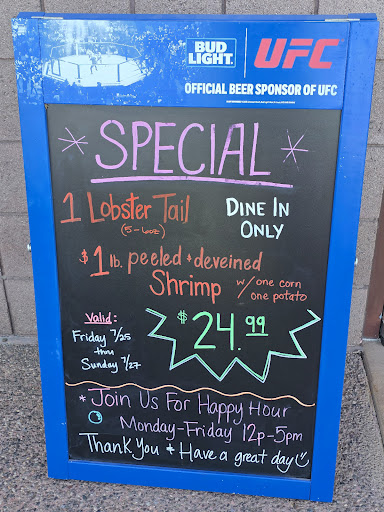 BUD LIGHT
UFC
OFFICIAL BEER SPONSOR OF UFC
* SPECIAL *
1 Lobster Tail
(5-6oz)
DINE IN
ONLY
$ 1 lb. peeled + deveined
Shrimp w/ one corn
one potato
Valid:
Friday 7/25
thru
Sunday 7/27
$24.99
* Join Us For Happy Hour
Monday-Friday 12p-5pm
Thank You + Have a great day